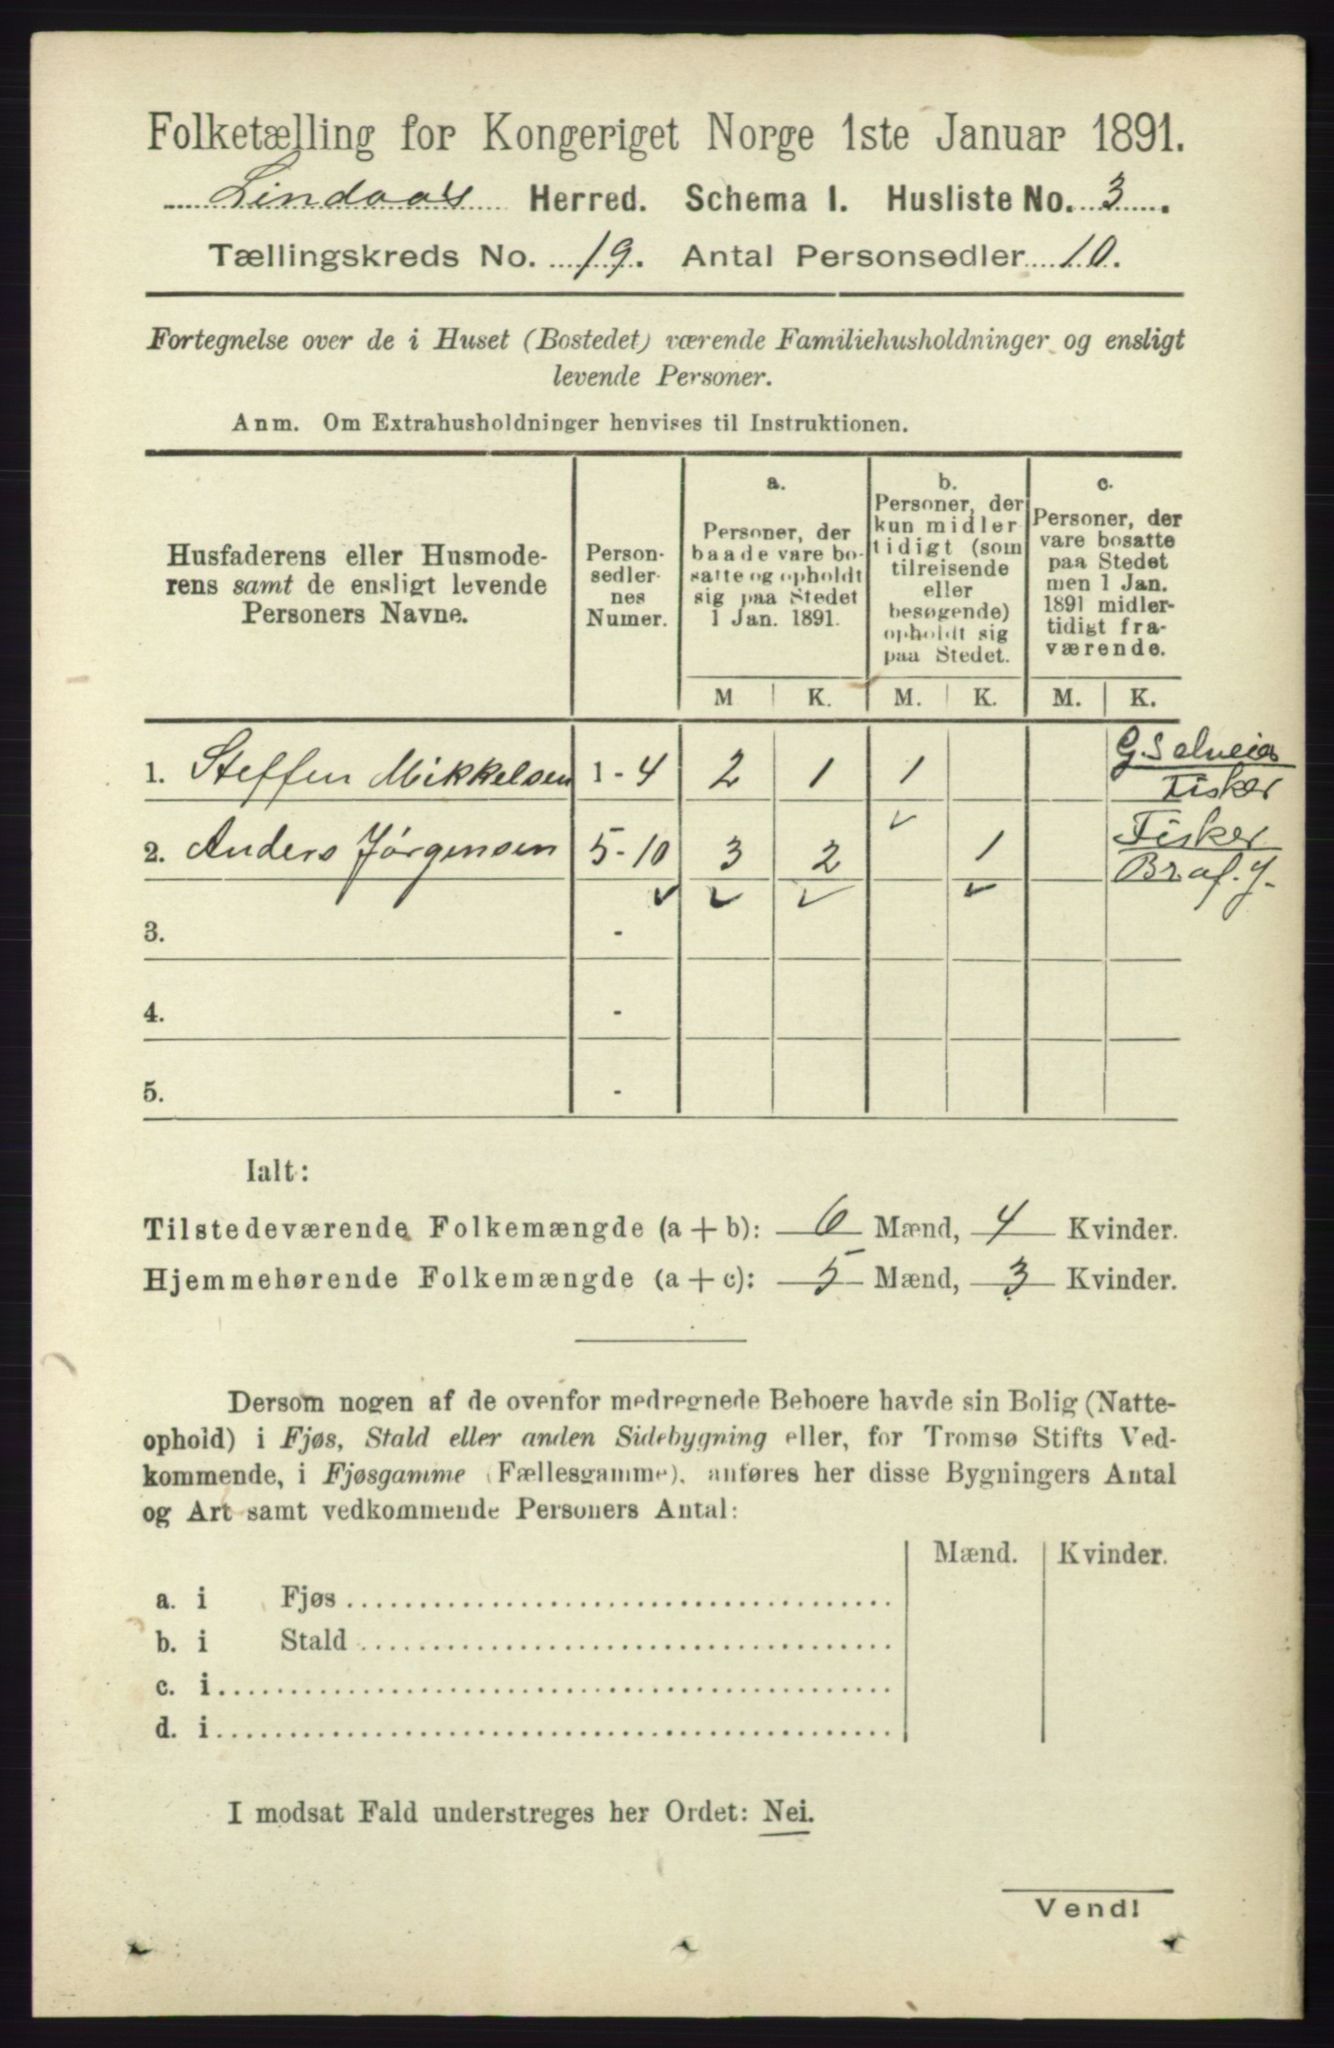 Folketælling for Kongeriget Norge 1ste Januar 1891.
Lindaas Herred. Schema I. Husliste No. 3.
Tællingskreds No. 19. Antal Personsedler 10.
Fortegnelse over de i Huset (Bostedet) værende Familiehusholdninger og ensligt
levende Personer.
Anm. Om Extrahusholdninger henvises til Instruktionen.
Husfaderens eller Husmode-
rens samt de ensligt levende
Personers Navne.
Person-
sedler-
nes
Numer.
a.
Personer, der
baade vare bo-
satte og opholdt
sig paa Stedet
1 Jan. 1891.
b.
Personer, der
kun midler
tidigt (som
tilreisende
eller
besøgende)
opholdt sig
paa Stedet.
c.
Personer, der
vare bosatte
paa Stedet
men 1 Jan.
1891 midler-
tidigt fra-
værende.
M K. M. K. M. K.
1. Steffen Mikkelsen 1 - 4 2 1 1 G. Selveier
Fisker
2. Anders Jørgensen 5 - 10 3 2 1 Fisker
Br. af. J.
3. -
4. -
5. -
Ialt:
Tilstedeværende Folkemængde (a + b): 6 Mænd, 4 Kvinder.
Hjemmehørende Folkemængde (a + c): 5 Mænd, 3 Kvinder.
Dersom nogen af de ovenfor medregnede Beboere havde sin Bolig (Natte-
ophold) i Fjøs, Stald eller anden Sidebygning eller, for Tromsø Stifts Ved-
kommende, i Fjøsgamme (Fællesgamme), anføres her disse Bygningers Antal
og Art samt vedkommende Personers Antal:
Mænd. Kvinder.
a. i Fjøs
b. i Stald
c. i
d. i
I modsat Fald understreges her Ordet: Nei.
Vend!